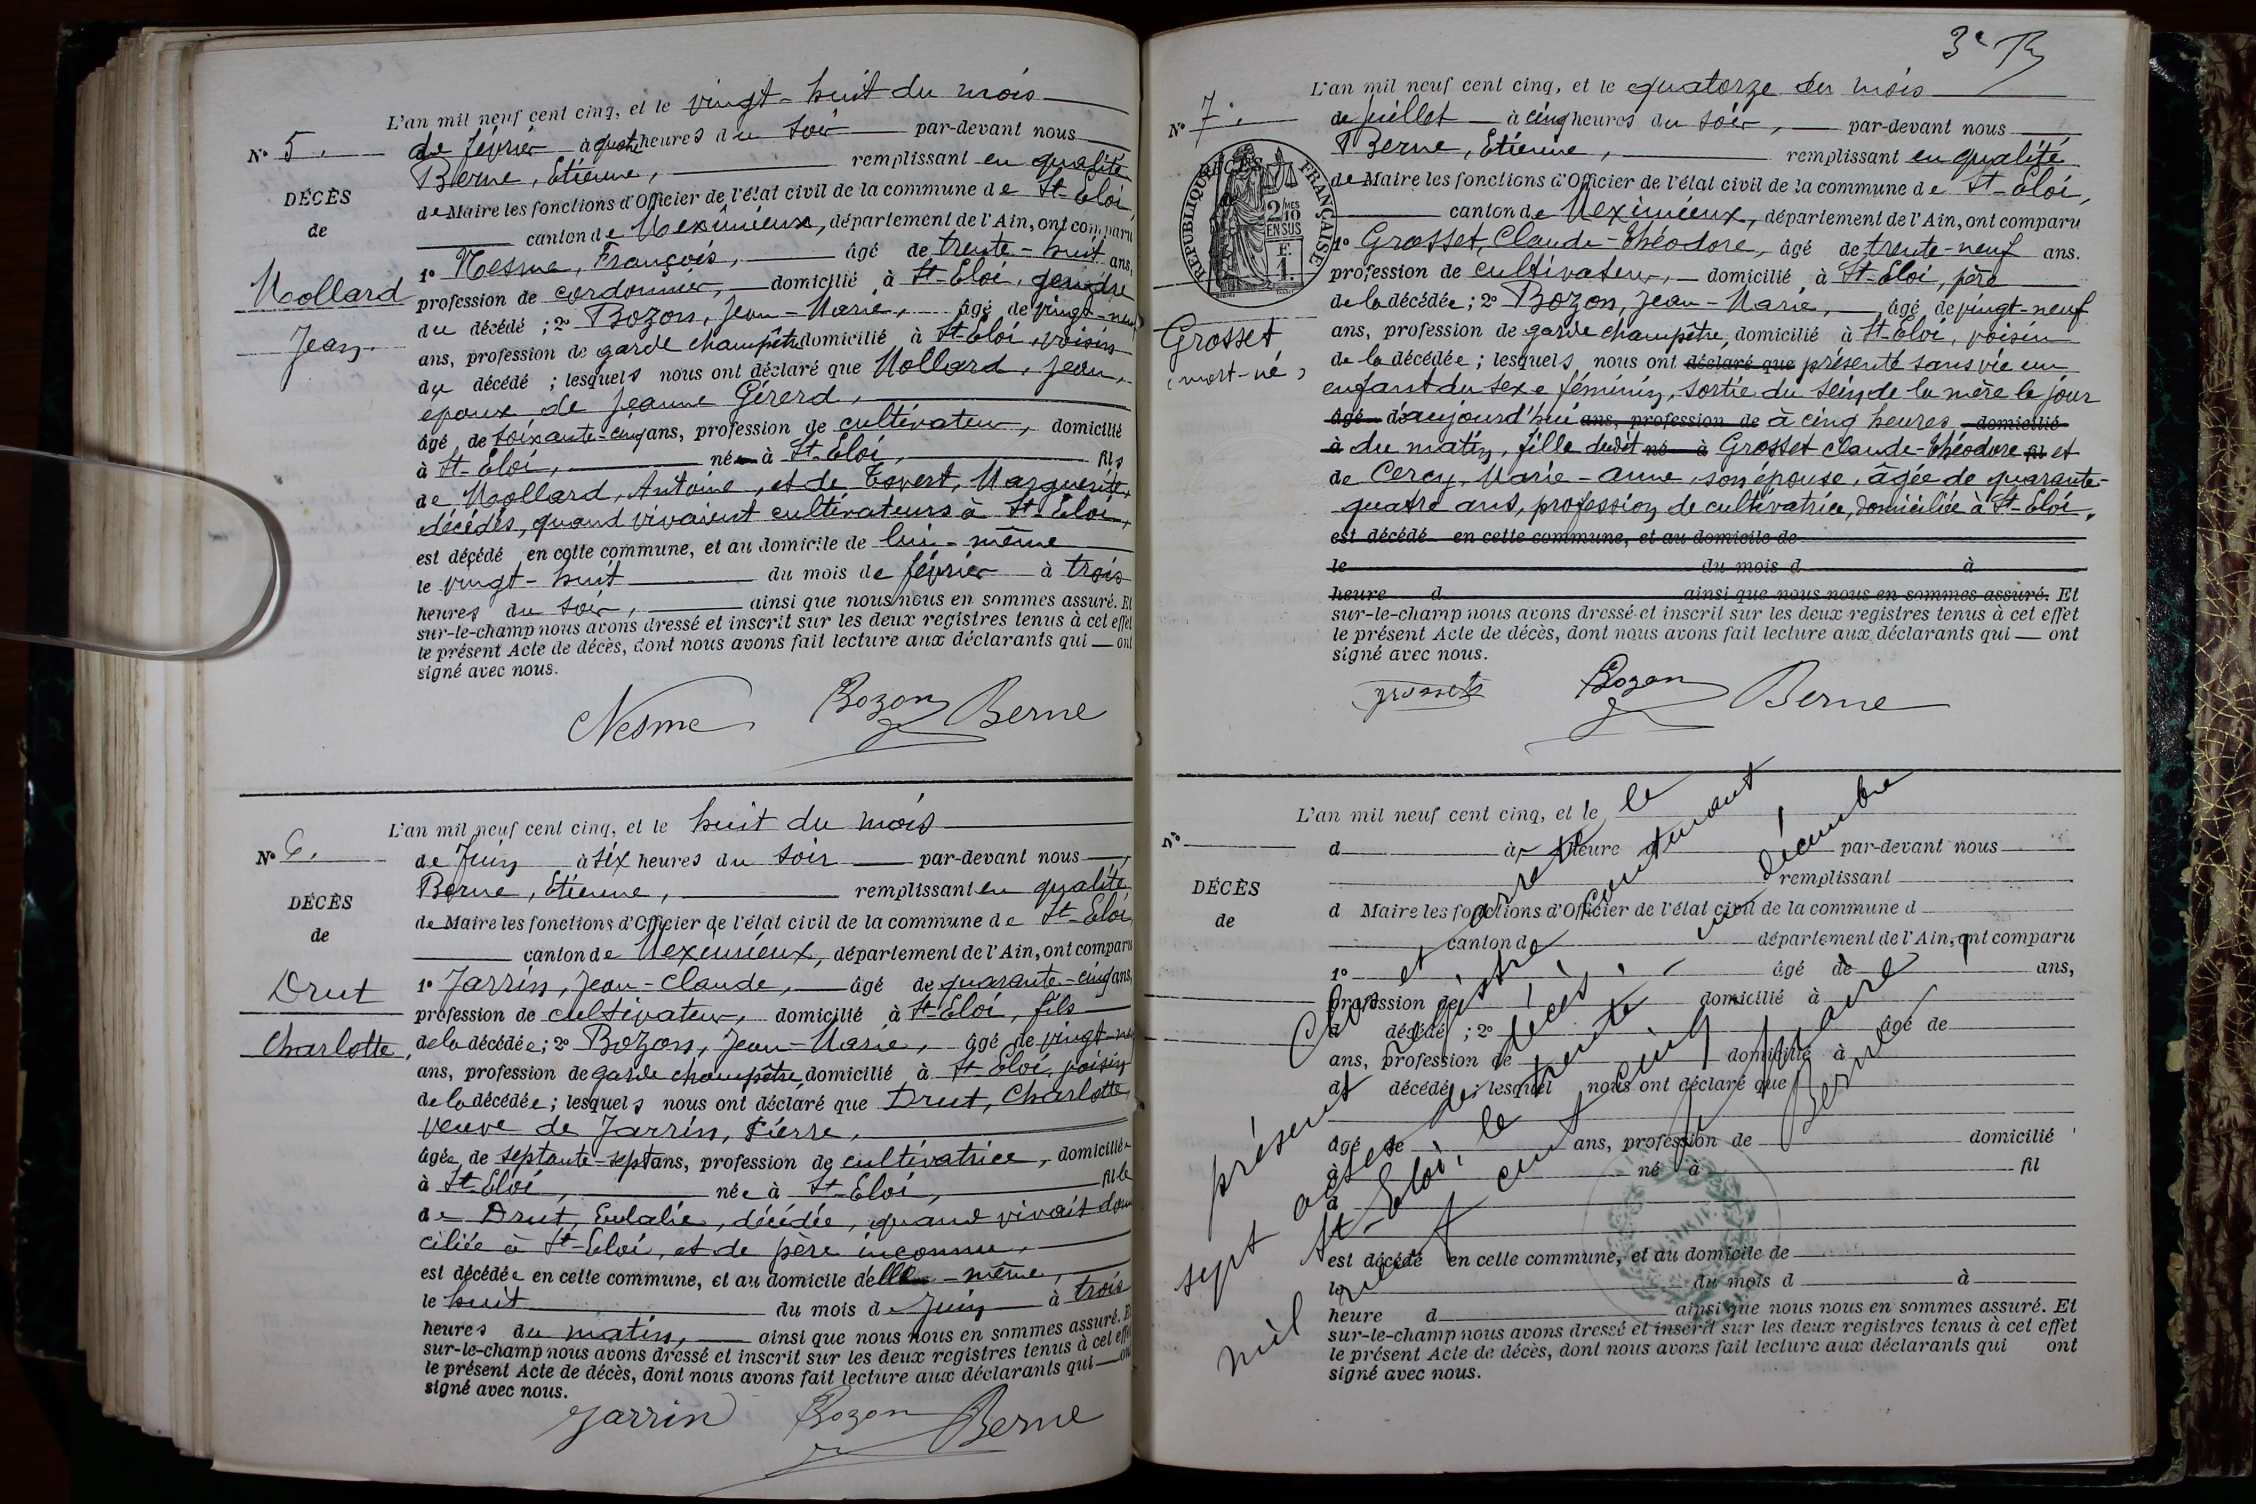 L'an mil neuf cent cinq, et le vingt-huit du mois
N° 5.
de février à quatre heures du soir par-devant nous
Berne, Etienne, remplissant en qualité
DÉCÈS
de Maire les fonctions d'Officier de l'état civil de la commune de St-Eloi,
de
canton de Meximieux, département de l'Ain, ont comparu
1° Nesme, François, âgé de trente-huit ans,
Mollard
profession de cordonnier, domicilié à St-Eloi, gendre
du décédé ; 2° Bozon, Jean-Marie, âgé de vingt-neuf
Jean
ans, profession de garde champêtre domicilié à St-Eloi, voisin
du décédé ; lesquels nous ont déclaré que Mollard, Jean,
époux de Jeanne Gérerd,
âgé de soixante-cinq ans, profession de cultivateur, domicilié
à St-Eloi, né à St-Eloi, fils
de Mollard, Antoine, et de Tovert, Marguerite,
décédés, quand vivaient cultivateurs à St-Eloi,
est décédé en cette commune, et au domicile de lui-même
le vingt-huit du mois de février à trois
heures du soir, ainsi que nous nous en sommes assuré. Et
sur-le-champ nous avons dressé et inscrit sur les deux registres tenus à cet effet
le présent Acte de décès, dont nous avons fait lecture aux déclarants qui ont
signé avec nous.
Nesme Bozon Berne
L'an mil neuf cent cinq, et le huit du mois
N° 6.
de Juin à six heures du soir par-devant nous
Berne, Etienne, remplissant en qualité
DÉCÈS
de Maire les fonctions d'Officier de l'état civil de la commune de St-Eloi
de
canton de Meximieux, département de l'Ain, ont comparu
Drut
1° Jarrin, Jean-Claude, âgé de quarante-cinq ans,
profession de cultivateur, domicilié à St-Eloi, fils
Charlotte,
de la décédée ; 2° Bozon, Jean-Marie, âgé de vingt-neuf
ans, profession de garde champêtre domicilié à St-Eloi, voisin
de la décédée ; lesquels nous ont déclaré que Drut, Charlotte,
veuve de Jarrin, Pierre,
âgée de septante-sept ans, profession de cultivatrice, domiciliée
à St-Eloi, née à St-Eloi, fille
de Drut, Eulalie, décédée, quand vivait domi
ciliée à St-Eloi, et de père inconnu,
est décédée en cette commune, et au domicile d'elle-même,
le huit du mois de Juin à trois
heures du matin, ainsi que nous nous en sommes assuré. Et
sur-le-champ nous avons dressé et inscrit sur les deux registres tenus à cet effet
le présent Acte de décès, dont nous avons fait lecture aux déclarants qui ont
signé avec nous.
Jarrin Bozon Berne
3e
L'an mil neuf cent cinq, et le quatorze du mois
N° 7.
de Juillet à cinq heures du soir, par-devant nous
Berne, Etienne, remplissant en qualité
DÉCÈS
RÉPUBLIQUE FRANÇAISE
2/10 MES
EN SUS
F.
1.
de Maire les fonctions d'Officier de l'état civil de la commune de St-Eloi,
canton de Meximieux, département de l'Ain, ont comparu
1° Grosset, Claude-Théodore, âgé de trente-neuf ans.
profession de cultivateur, domicilié à St-Eloi, père
de la décédée ; 2° Bozon, Jean-Marie, âgé de vingt-neuf
Grosset
(mort-né)
ans, profession de garde champêtre, domicilié à St-Eloi, voisin
de la décédée ; lesquels nous ont déclaré que présenté sans vie un
enfant du sexe féminin, sortie du sein de la mère le jour
âgé d'aujourd'hui ans, profession de à cinq heures domicilié
à du matin, fille dudit né à Grosset Claude-Théodore fil et
de Cercy, Marie-Anne, son épouse, âgée de quarante-
quatre ans, profession de cultivatrice, domiciliée à St-Eloi,
est décédé en cette commune, et au domicile de
le du mois d à
heure d ainsi que nous nous en sommes assuré. Et
sur-le-champ nous avons dressé et inscrit sur les deux registres tenus à cet effet
le présent Acte de décès, dont nous avons fait lecture aux déclarants qui ont
signé avec nous.
grosset Bozon Berne
L'an mil neuf cent cinq, et le
N°
d à heure d par-devant nous
remplissant
DÉCÈS
d Maire les fonctions d'Officier de l'état civil de la commune d
de
canton de département de l'Ain, ont comparu
1° âgé de ans,
profession de domicilié à
d décédé ; 2° âgé de
ans, profession de domicilié à
d décédé ; lesquel nous ont déclaré que
âgé de ans, profession de domicilié
à né à fil
d
est décédé en cette commune, et au domicile de
le du mois d à
heure d ainsi que nous nous en sommes assuré. Et
sur-le-champ nous avons dressé et inscrit sur les deux registres tenus à cet effet
le présent Acte de décès, dont nous avons fait lecture aux déclarants qui ont
signé avec nous.
Clos et arrêté le
présent registre contenant
sept actes de décès.
St-Eloi, le trente un décembre
mil neuf cent cinq
Le maire
Berne